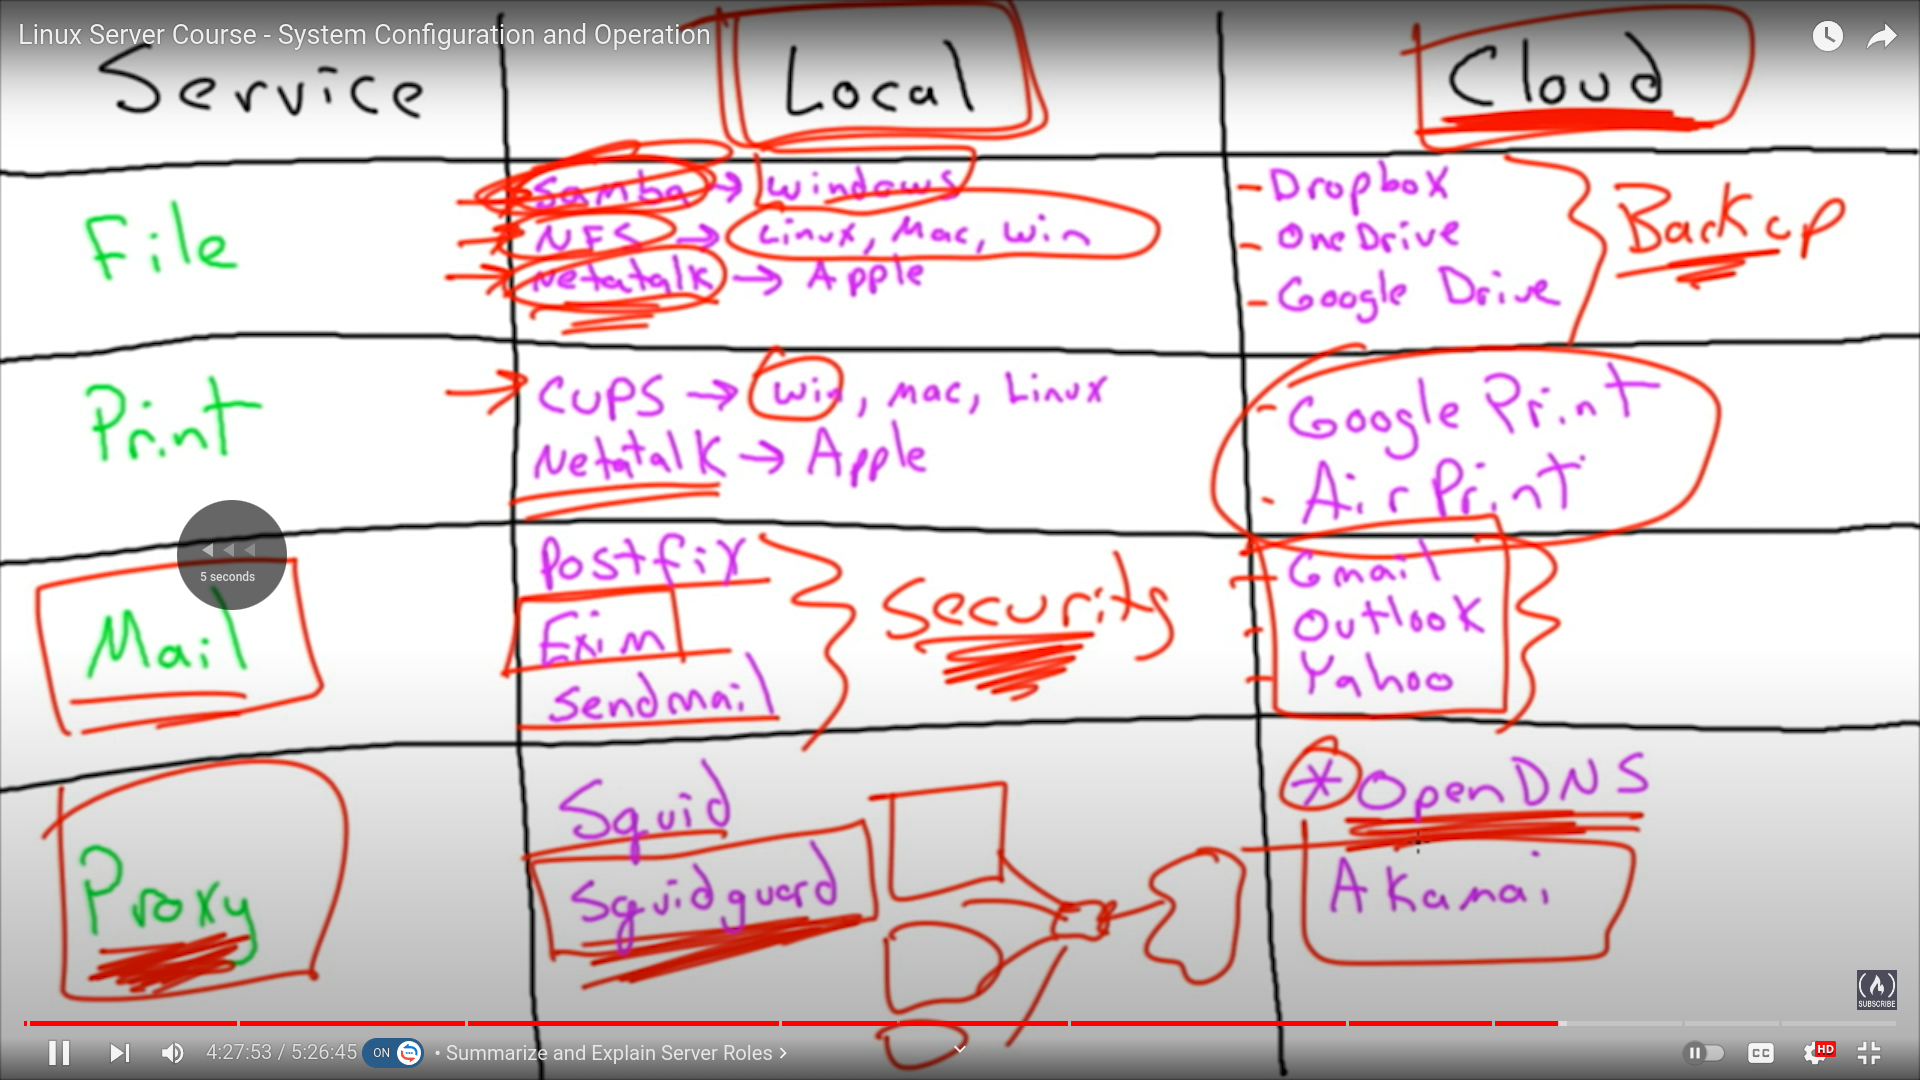 Linux Server Course - System Configuration and Operation
Service Local Cloud
File
Samba → Windows
NFS → Linux, Mac, Win
Netatalk → Apple
- Dropbox
- OneDrive
- Google Drive
Backup
Print
CUPS → Win, Mac, Linux
Netatalk → Apple
- Google Print
- AirPrint
5 seconds
Mail
Postfix
Exim
Sendmail
Security
- Gmail
- Outlook
- Yahoo
Proxy
Squid
Squidguard
* OpenDNS
Akamai
SUBSCRIBE
4:27:53 / 5:26:45 ON • Summarize and Explain Server Roles > CC HD